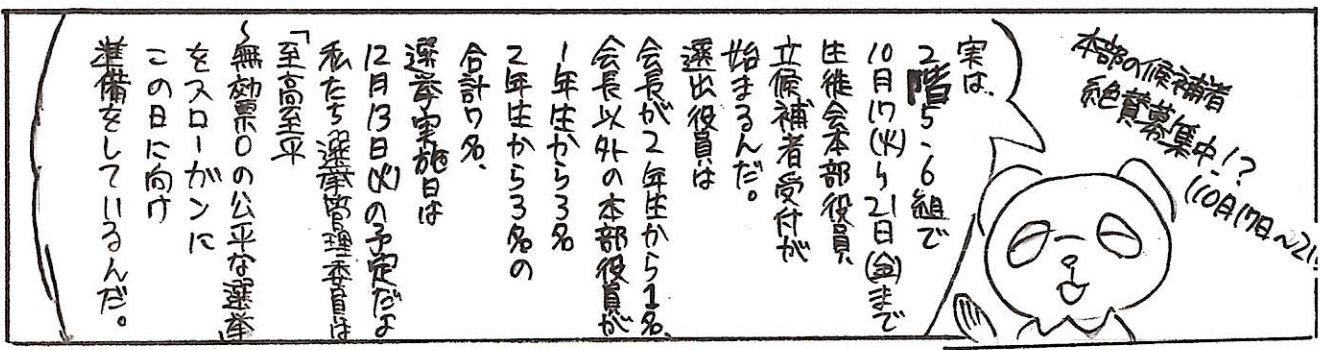 本部の候補者
絶賛募集中!?
(10月17日~21
実は、
2階5、6組で
10月17(火)から21日(金)まで
生徒会本部役員
立候補者受付が
始まるんだ。
選出役員は
会長が2年生から1名、
会長以外の本部役員が
1年生から3名
2年生から3名の
合計7名、
選挙実施日は
12月13日(火)の予定だよ
私たち選挙管理委員は
「至高至平
~無効票0の公平な選挙」
をスローガンに
この日に向け
準備をしているんだ。